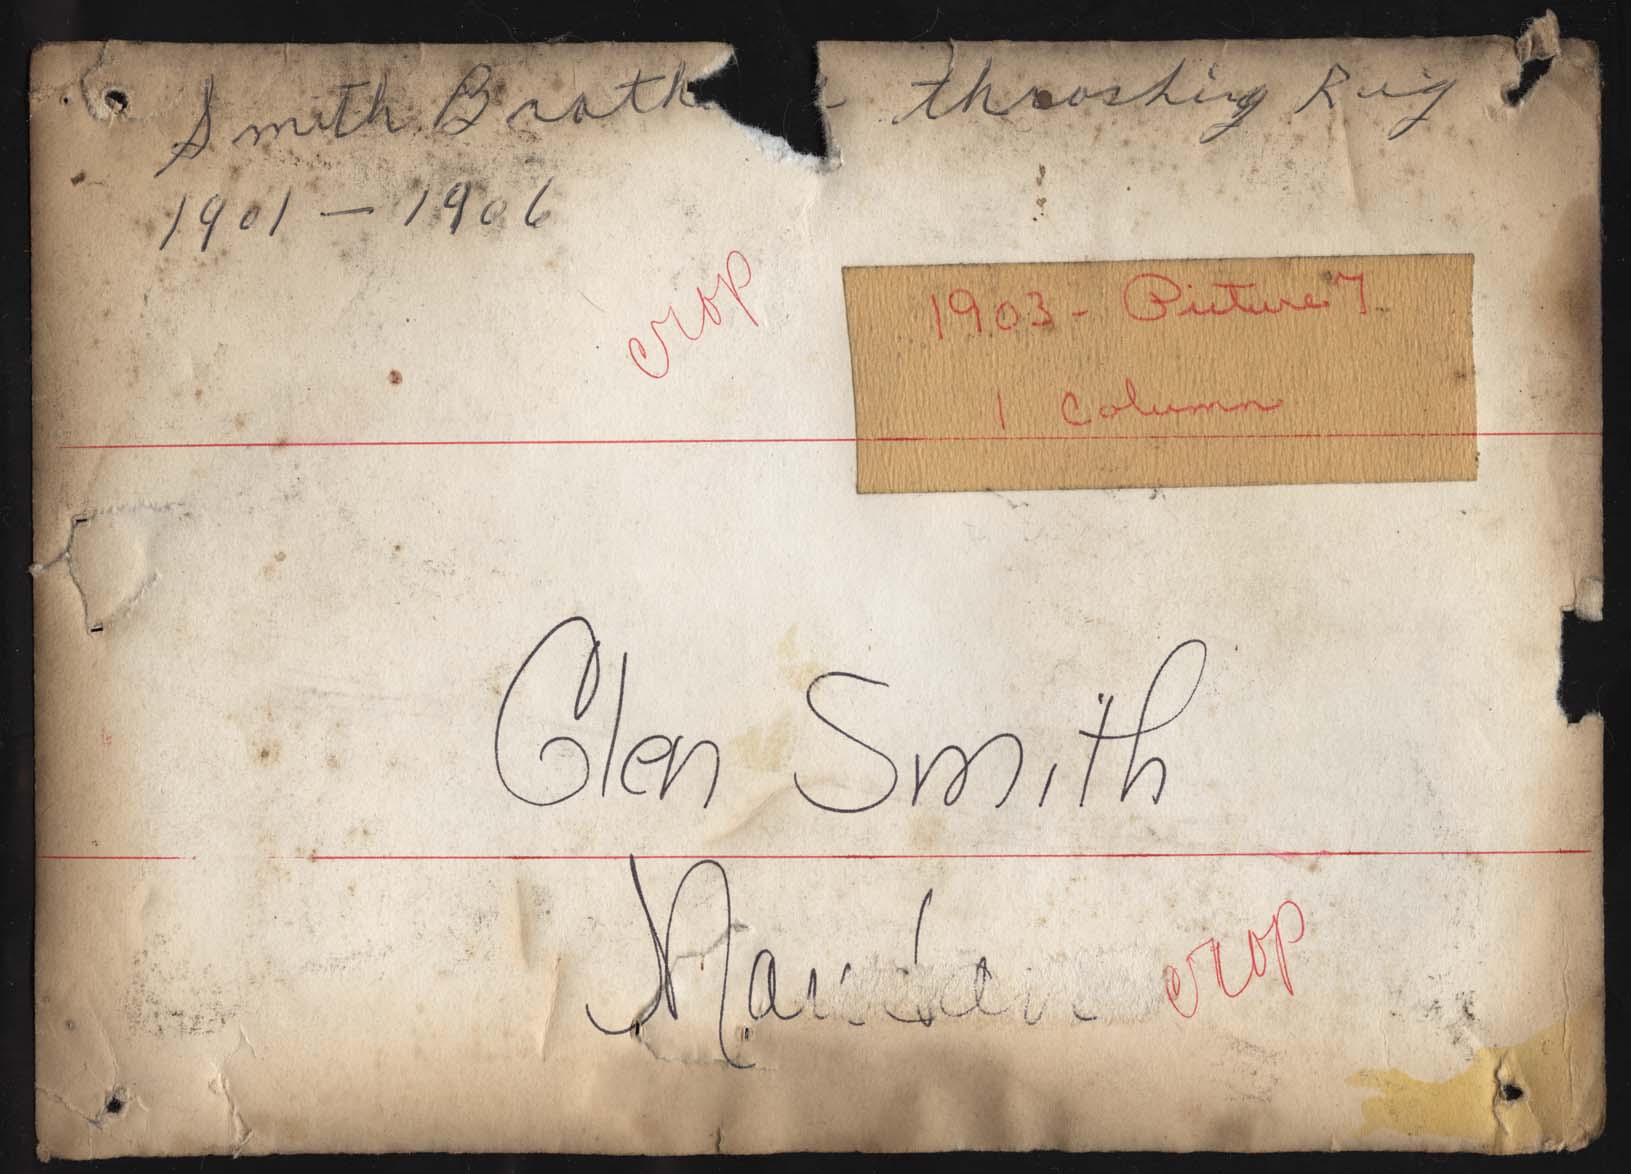 Smith Broth - throshing Rig
1901 - 1906
crop
1903 - Picture 7
1 Column
Glen Smith
crop